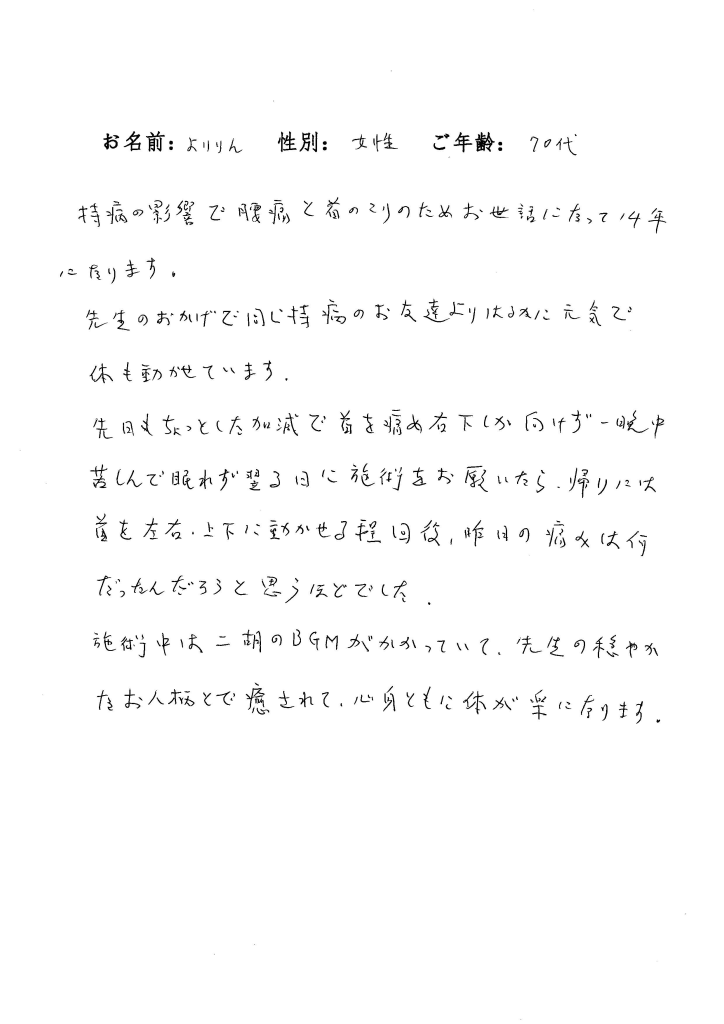 お名前：よりりん 性別： 女性 ご年齢： 70代
持病の影響で腰痛と首のこりのためお世話になって14年
になります。
先生のおかげで同じ持病のお友達よりはるかに元気で
体も動かせています.
先日もちょっとした加減で首を痛め右下しか向けず一晩中
苦しんで眠れず翌る日に施術をお願いたら、帰りには
首を左右.上下に動かせる程回復,昨日の痛みは何
だったんだろうと思うほどでした.
施術中は二胡のBGMがかかっていて、先生の穏やか
なお人柄とで癒されて、心身ともに体が楽になります.